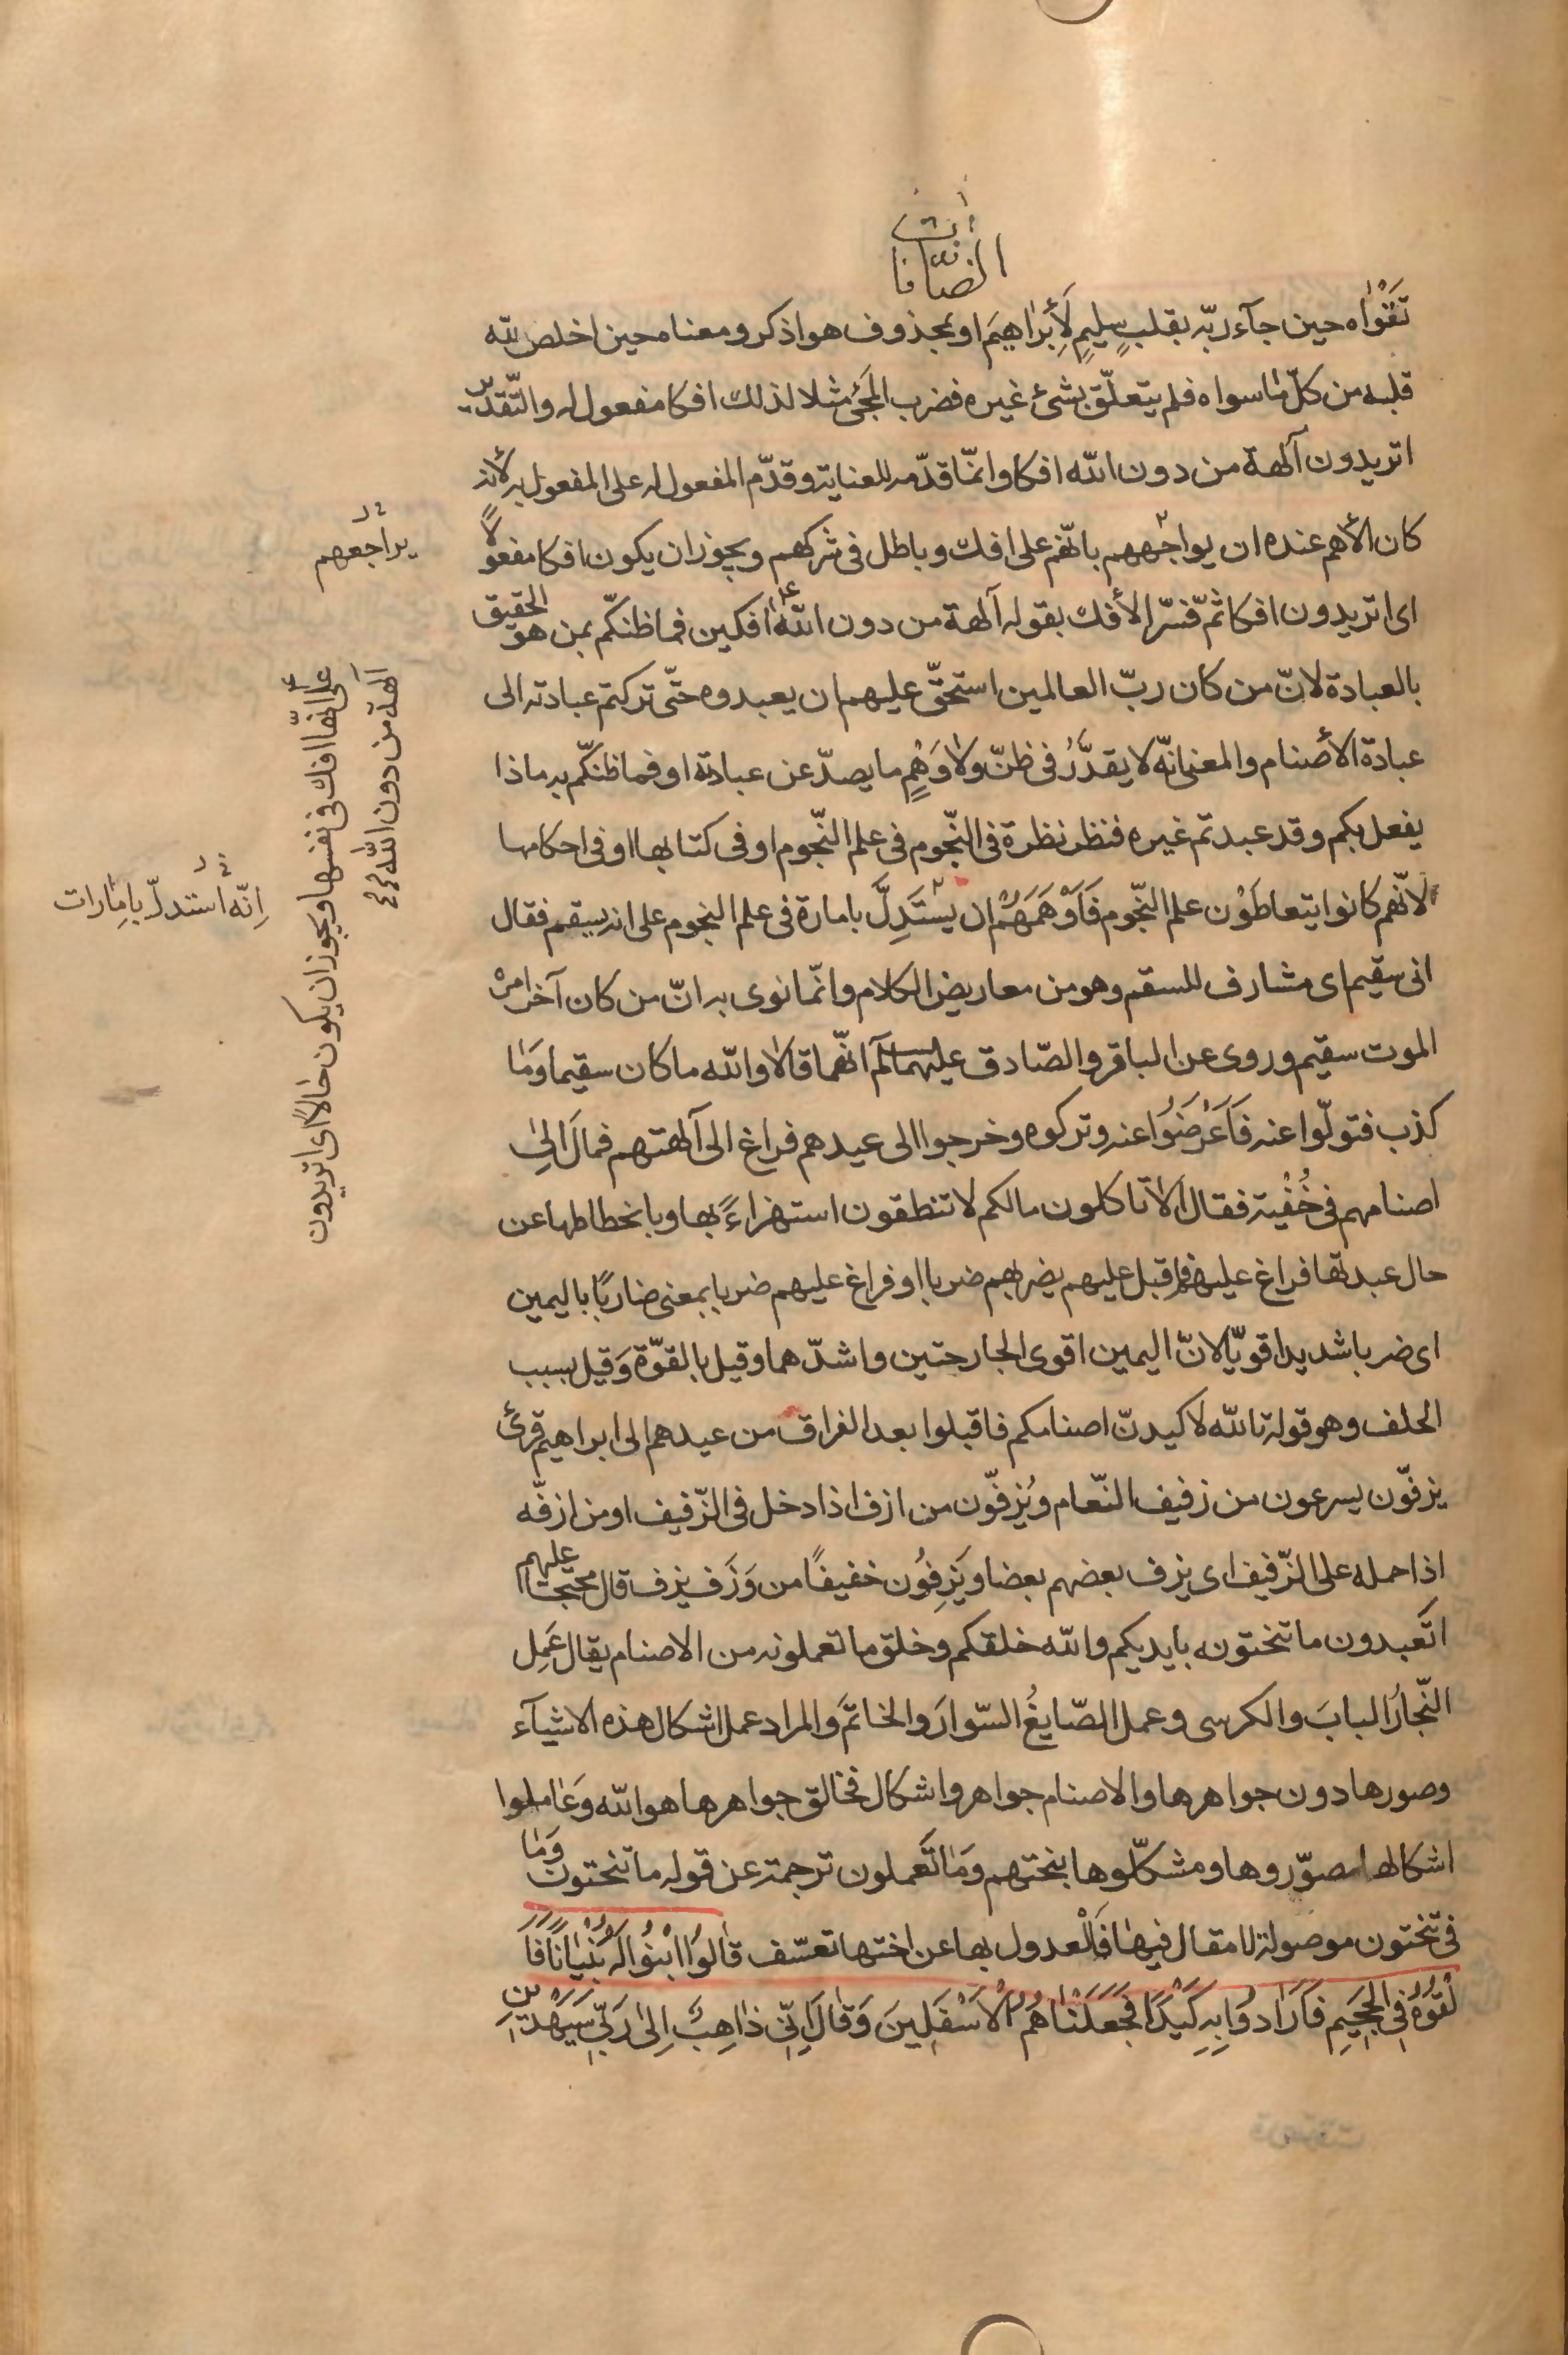 الصّافّات
تَقْوٰاه حين جآء ربّه بقلبٍ سليمٍ لَأِبرٰاهيمَ او بمحذوف هو اذكر و معناه حين اخلص لله
قلبه من كلّ مٰا سواه فلم يتعلّق بشئ غيره فضرب المَجئ مثلا لذلك افكا مفعول له والتّقدير
اتريدون آلهة من دون الله افكا وانّما قدّمه للعناية وقدّم المفعول له على المفعول به لأنه
كان الأهم عنده ان يواجههم بانّهم على افك وباطل فى شركهم ويجوز ان يكون افكا مفعولاً
اى اتريدون افكا ثمّ فسّر الأفك بقوله آلهة من دون الله افكين فما ظنكّم بمن هو الحقيق
بالعبادة لانّ من كان ربّ العالمين استحقّ عليهم ان يعبدوه حتّى تركتم عبادته الى
عبادة الأصنام والمعنى انّه لا يقدَّرُ فى ظنّ ولٰا وَهْمٍ ما يصدّ عن عبادته او فما ظنكّم به ماذا
يفعل بكم وقد عبدتم غيره فنظر نظرة فى النّجوم فى علم النّجوم او فى كتابها او فى احكامها
لانّهم كانوا يتعاطَوْن علم النّجوم فَاَوْهَمَهُمْ ان يستَدِلَّ بامارة فى علم النجوم على انه يسقم فقال
انى سقيم اى مشارف للسقم وهو من معاريض الكلام وانّما نوى به انّ من كان آخر امره
الموت سقيم وروى عن الباقر والصّادق عليهما السلم انّهما قالا والله ما كان سقيما وَمٰا
كذب فتولّوا عنه فَاَعْرَضُوا عنه وتركوه وخرجوا الى عيدهم فراغ الى آلهتهم فمالَ الىٰ
اصنامهم فى خُفْية فقال اَلٰا تاكلون مالكم لا تنطقون استهزاءً بها وبانحطاطها عن
حال عبدتها فراغ عليهم فاقبل عليهم يضربهم ضربا او فراغ عليهم ضربا بمعنى ضاربًا باليمين
اى ضربا شديدا قويّا لانّ اليمين اقوى الجارحتين واشدّهما وقيل بالقوّة وَقيل بسبب
الحلف وهو قوله تالله لاكيدنّ اصنامكم فاقبلوا بعد الفراق من عيدهم الى ابراهيم قرئ
يزفّون يسرعون من زفيف النّعام ويُزفّون من ازف اذا دخل فى الزّفيف او من ازفّه
اذا حمله على الزّفيف اى يزف بعضهم بعضا ويَزِفُون خفيفًا من وَزَف يزف قال محتجّا عليهم
اتَعبدون ما تنحتونه بايديكم والله خلقكم وخلق ما تعملونه من الاصنام يقال عَمِل
النّجارُ البابَ والكرسى وعمل الصّايغُ السّوارَ والخاتَمَ والمراد عمل اشكال هذه الاشيآء
وصورها دون جواهرها والاصنام جواهر واشكال فخالق جواهرها هو الله وَعٰاملوا
اشكالها مصوّروها ومشكلّوها بنحتهم وَمٰا تَعملون ترجمة عن قوله ما تنحتون وَمٰا
فى تنحتون موصولة لا مقال فيهٰا فَالْعدول بها عن اختها تعسّف قٰالُوا ابْنُوا لَهُ بُنْيٰانًا فَاَ
لْقُوهُ فِى الْجَحِيمِ فَاَرٰادُوا بِهِ كَيْدًا فَجَعَلْنٰاهُمُ الْاَسْفَلِينَ وَقٰالَ اِنِّى ذٰاهِبٌ اِلىٰ رَبِّى سَيَهْدِينِ
يراجعهم
على انّها افك فى نفسها ويجوز ان يكون حٰالاً اى اتريدون
آلهة من دون الله
اِنّه استدلّ بامٰارات